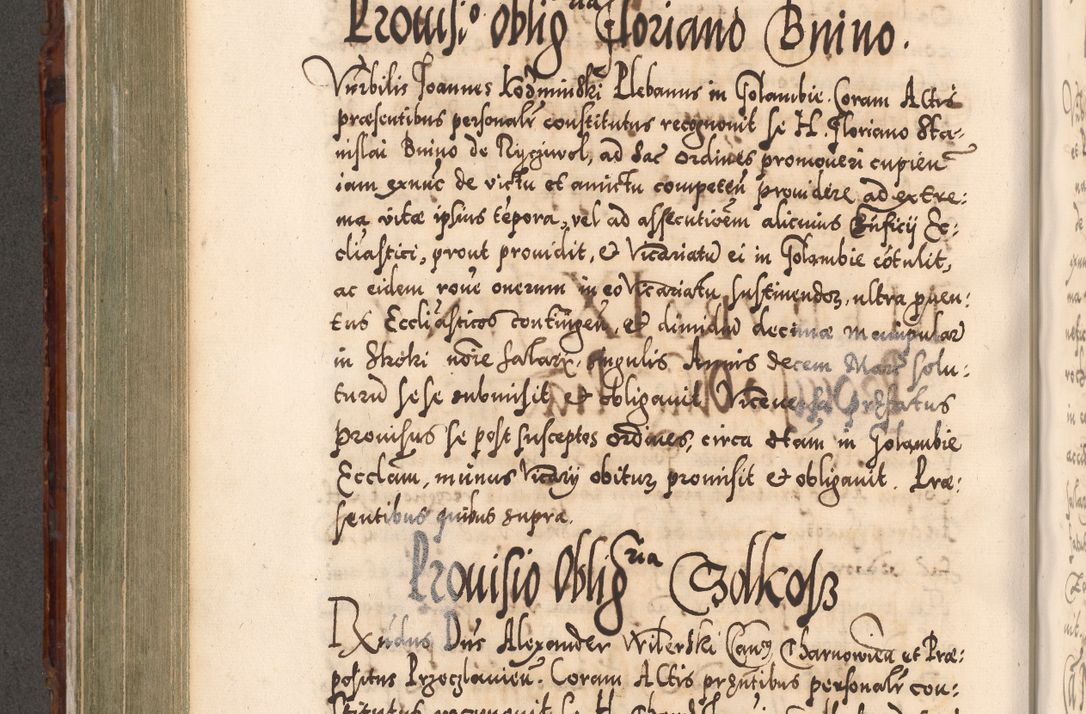 Provisio oblig^ria Floriano Bnino.
Vnrbilis Joannes Kozminski Plebanus in Golambie. Coram Actis
præsentibus personalr constitutus recognovit se H. Floriano Sta-
nislai Bnino de Ryczivol, ad sac ordines promoveri cupien
iam exnūc de victu et amictu competen providere ad extre-
ma vitæ ipsius tēpora, vel ad assecutioēm alicuius Bnficij Ec-
cliastici, prout providit, et Vicariatū ei in Golambie cōtulit,
ac eidem rōne onerum in eo Vicariatu sustinendoz, ultra pven-
tus Eccliasticos contingen, et dimidiū decimæ manipular
in Skoki nōre salarij singulis Annis decem Marc solu-
turū sese submisit et obligavit. Viceversa præfatus
Provisus se post susceptos ordines, circa dtam in Golambie
Ecclam, mūnus Vicarij obiturz promisit et obligavit. Præ-
sentibus quibus supra.
Provisio Oblig^ria
Rxndus Dns Alexander Canz Charnovien et Præ-
positus Coram Actis prsntibus personalr con-
stitutus recognovit se H.